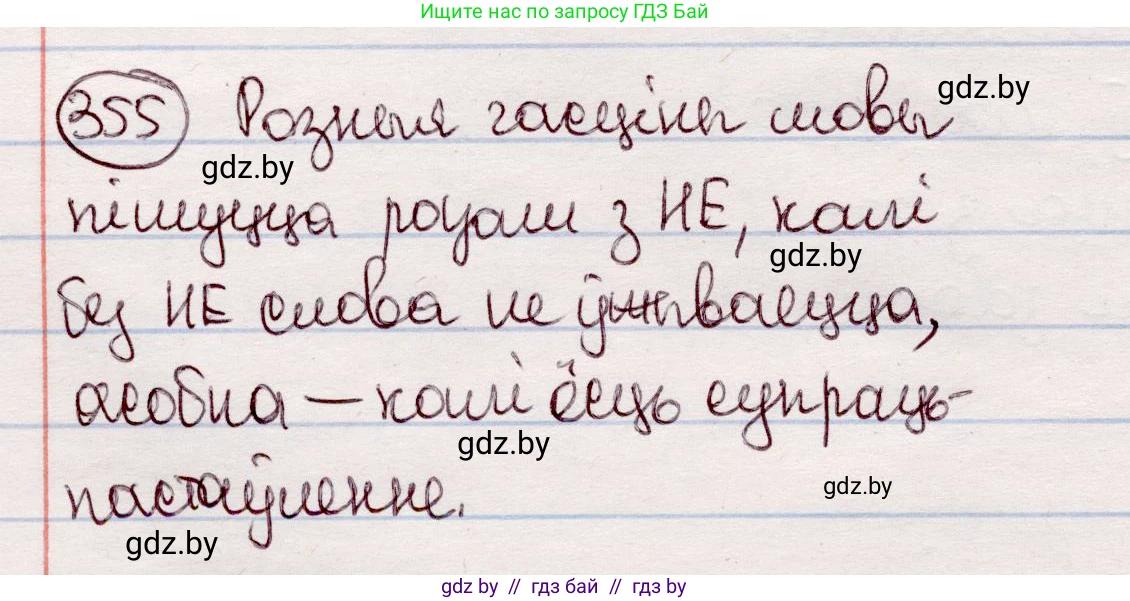 Ищите нас по запросу ГДЗ Бай
355 Розныя часціны мовы
gdz.by
gdz.by
пішуцца разам з НЕ, калі
gdz.by
без НЕ слова не ўжываецца,
асобна — калі ёсць супраць-
gdz.by
пастаўленне.
gdz.by
gdz.by
gdz by // гдз бай // гдз by